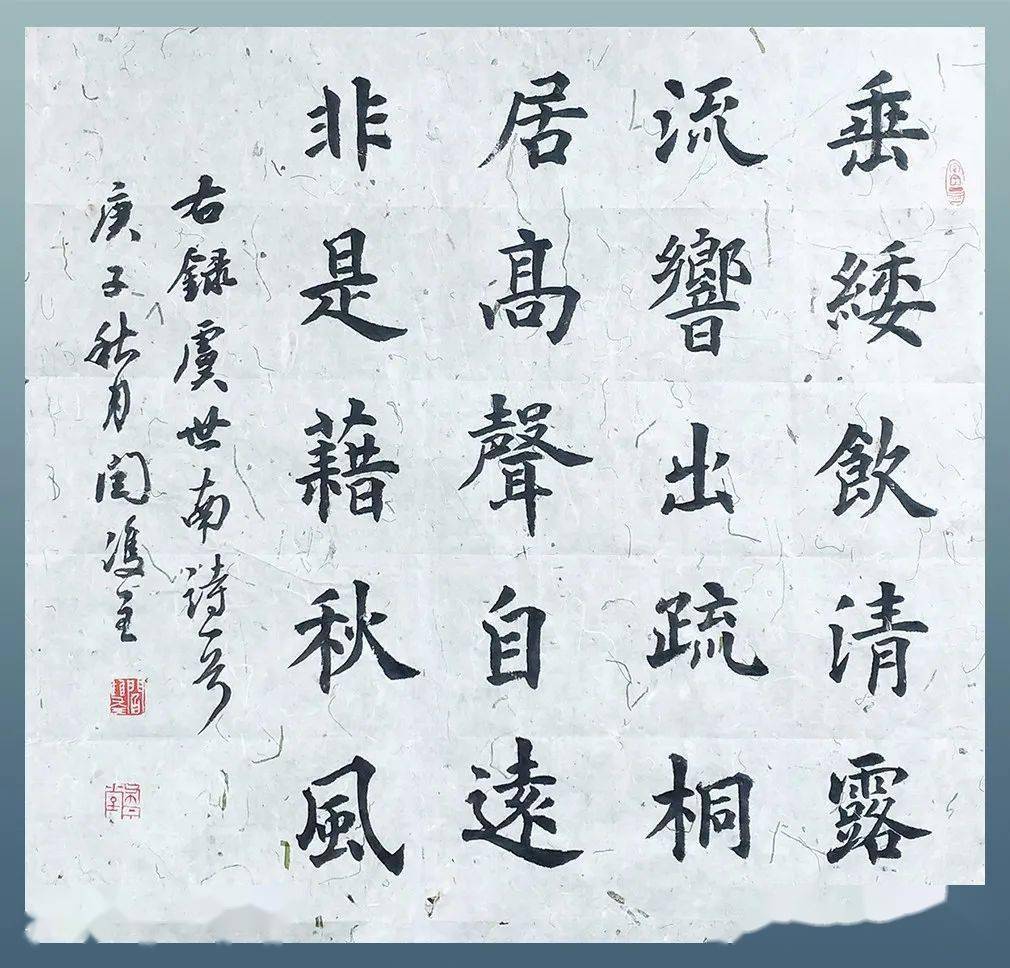 垂緌飲清露
流響出疏桐
居髙聲自遠
非是藉秋風
右録虞世南詩一首
庚子秋月闫